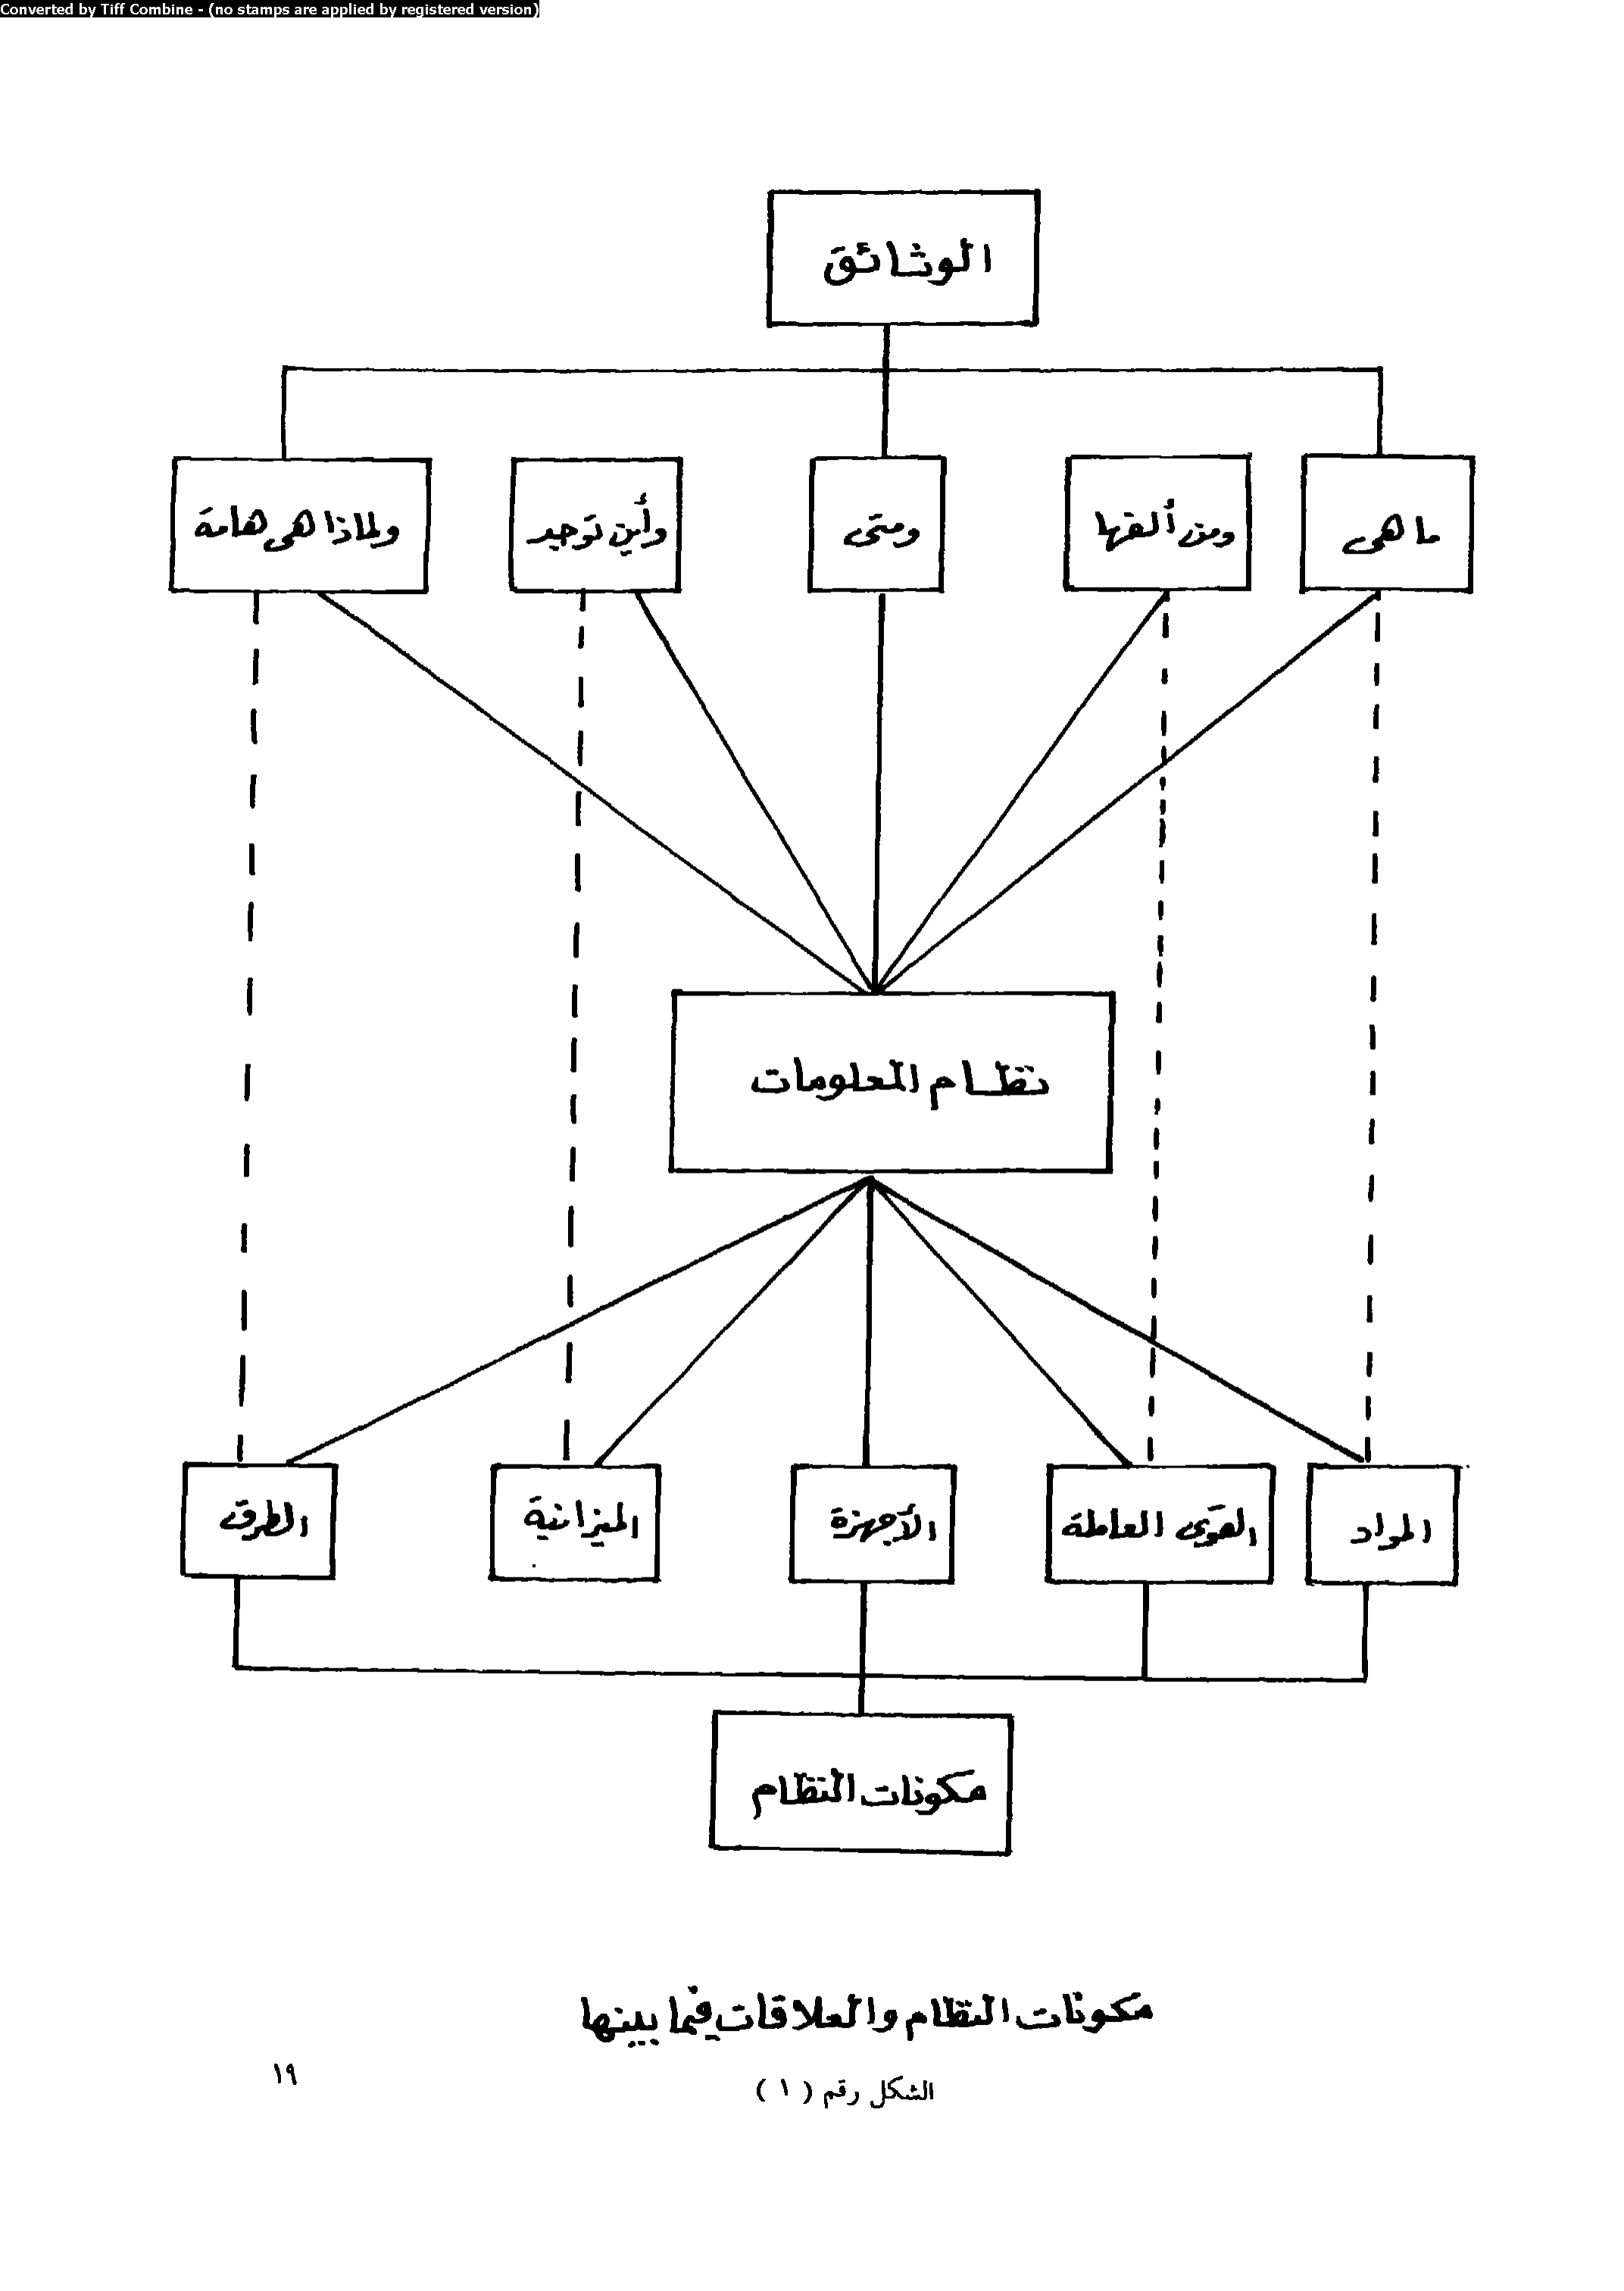 Converted by Tiff Combine - (no stamps are applied by registered version)
الوثائق
ما هى
ومن ألفها
ومتى
وأين توجد
ولماذا هى هامة
نظام المعلومات
المواد
القوى العاملة
الأجهزة
الميزانية
الطرق
مكونات النظام
مكونات النظام والعلاقات فيما بينها
الشكل رقم ( ١ )
١٩